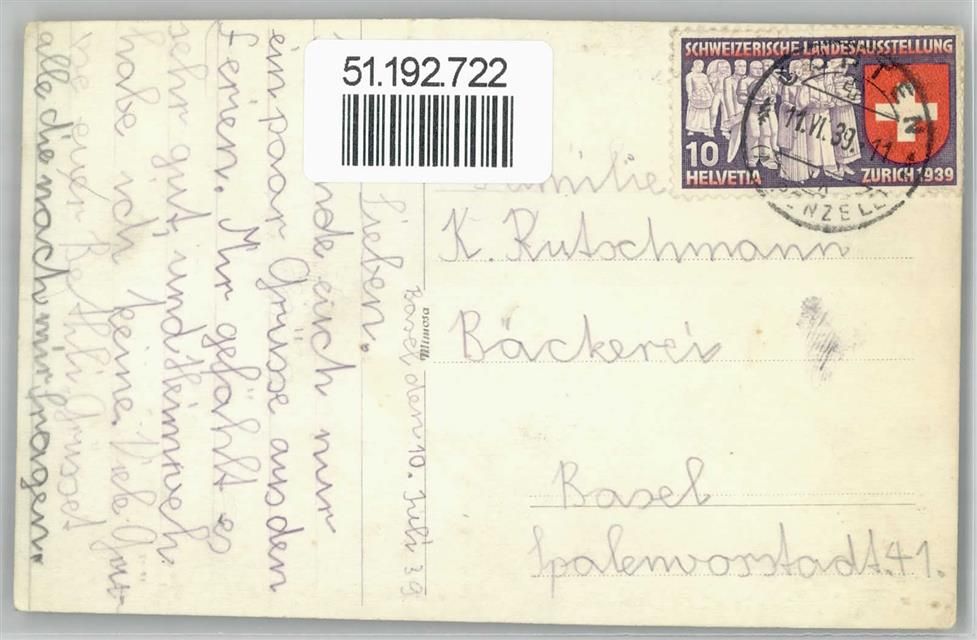 51.192.722
SCHWEIZERISCHE LANDESAUSSTELLUNG
10
HELVETIA
ZÜRICH 1939
11.VI.39.-11
Familie
K. Rutschmann
Bäckerei
Basel
Spalenvorstadt. 41.
Mimosa
Basel den 10. Juli 39
Lieben.
nde euch nur
ein paar Grüsse aus den
Ferien. Mir gefählt es
sehr gut, und Heimweh
habe ich keine. Viele Grüs-
se euer Bethli Grüsset
alle die nach mir fragen.